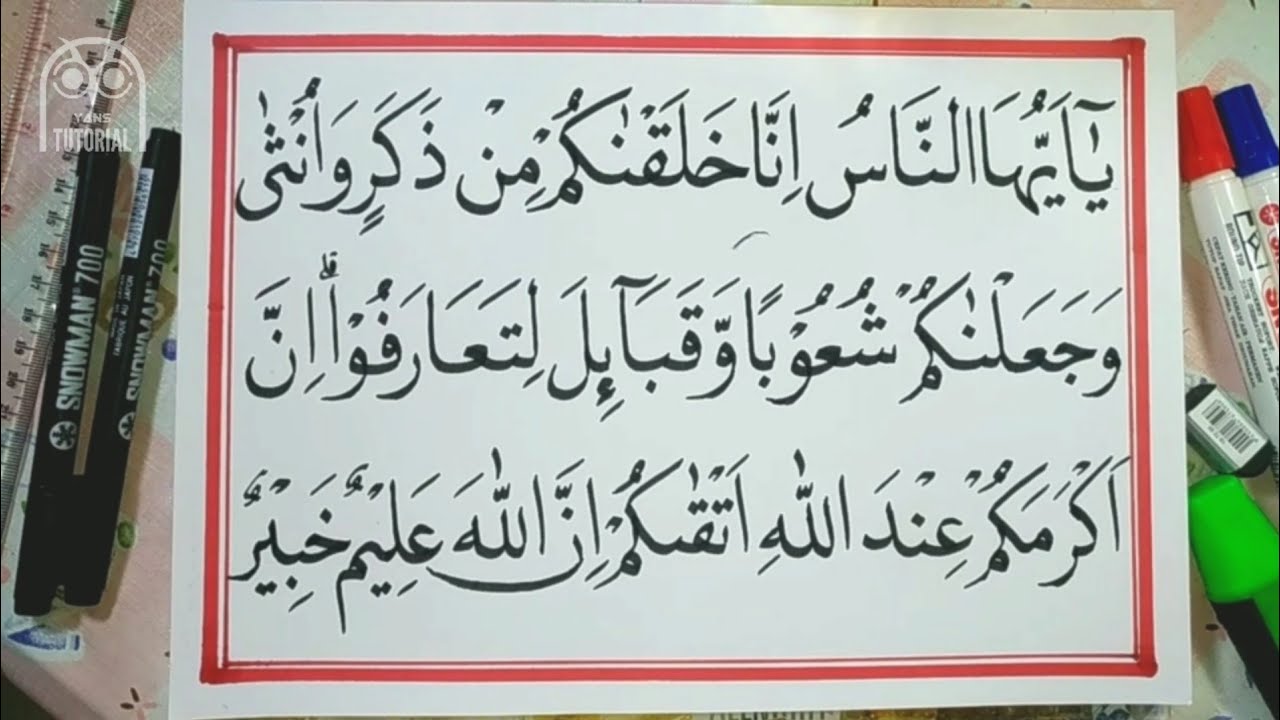 YANS
TUTORIAL
SNOWMAN 700
SNOWMAN 700
يٰٓاَيُّهَا النَّاسُ اِنَّا خَلَقْنٰكُمْ مِنْ ذَكَرٍ وَاُنْثٰى
وَجَعَلْنٰكُمْ شُعُوْبًا وَّقَبَاۤىِٕلَ لِتَعَارَفُوْاۗ اِنَّ
اَكْرَمَكُمْ عِنْدَ اللّٰهِ اَتْقٰىكُمْ اِنَّ اللّٰهَ عَلِيْمٌ خَبِيْرٌ